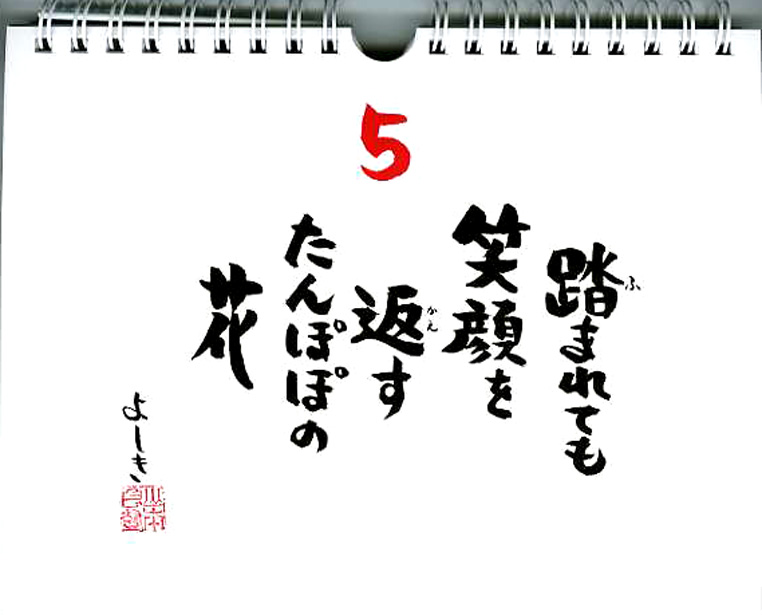 5
踏まれても
ふ
笑顔を
返す
かえ
たんぽぽの
花
よしき